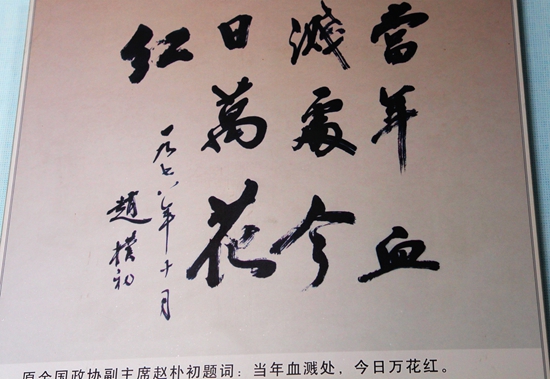 當年血
濺處今
日萬花
紅
一九七八年十月
趙樸初
原全国政协副主席赵朴初题词：当年血溅处，今日万花红。